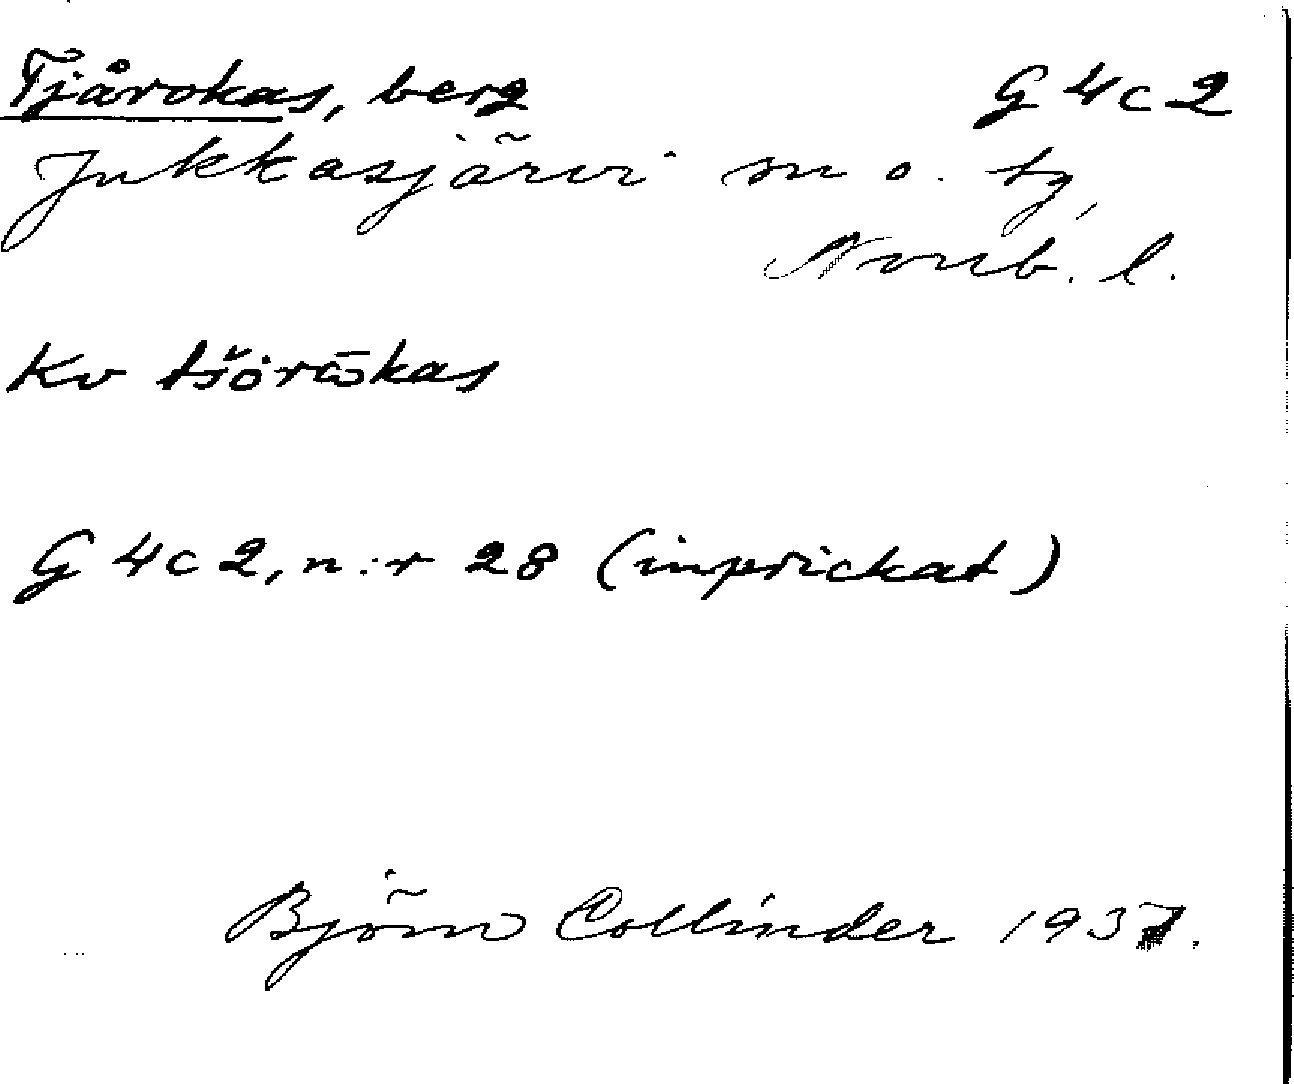 Tjårokas, berg G 4 c 2
Jukkasjärvi sn o. tg,
Norrb. l.
Kv tšǫ̇rω̄kas
G 4c 2, n:r 28 (inprickat)
Björn Collinder 1937.